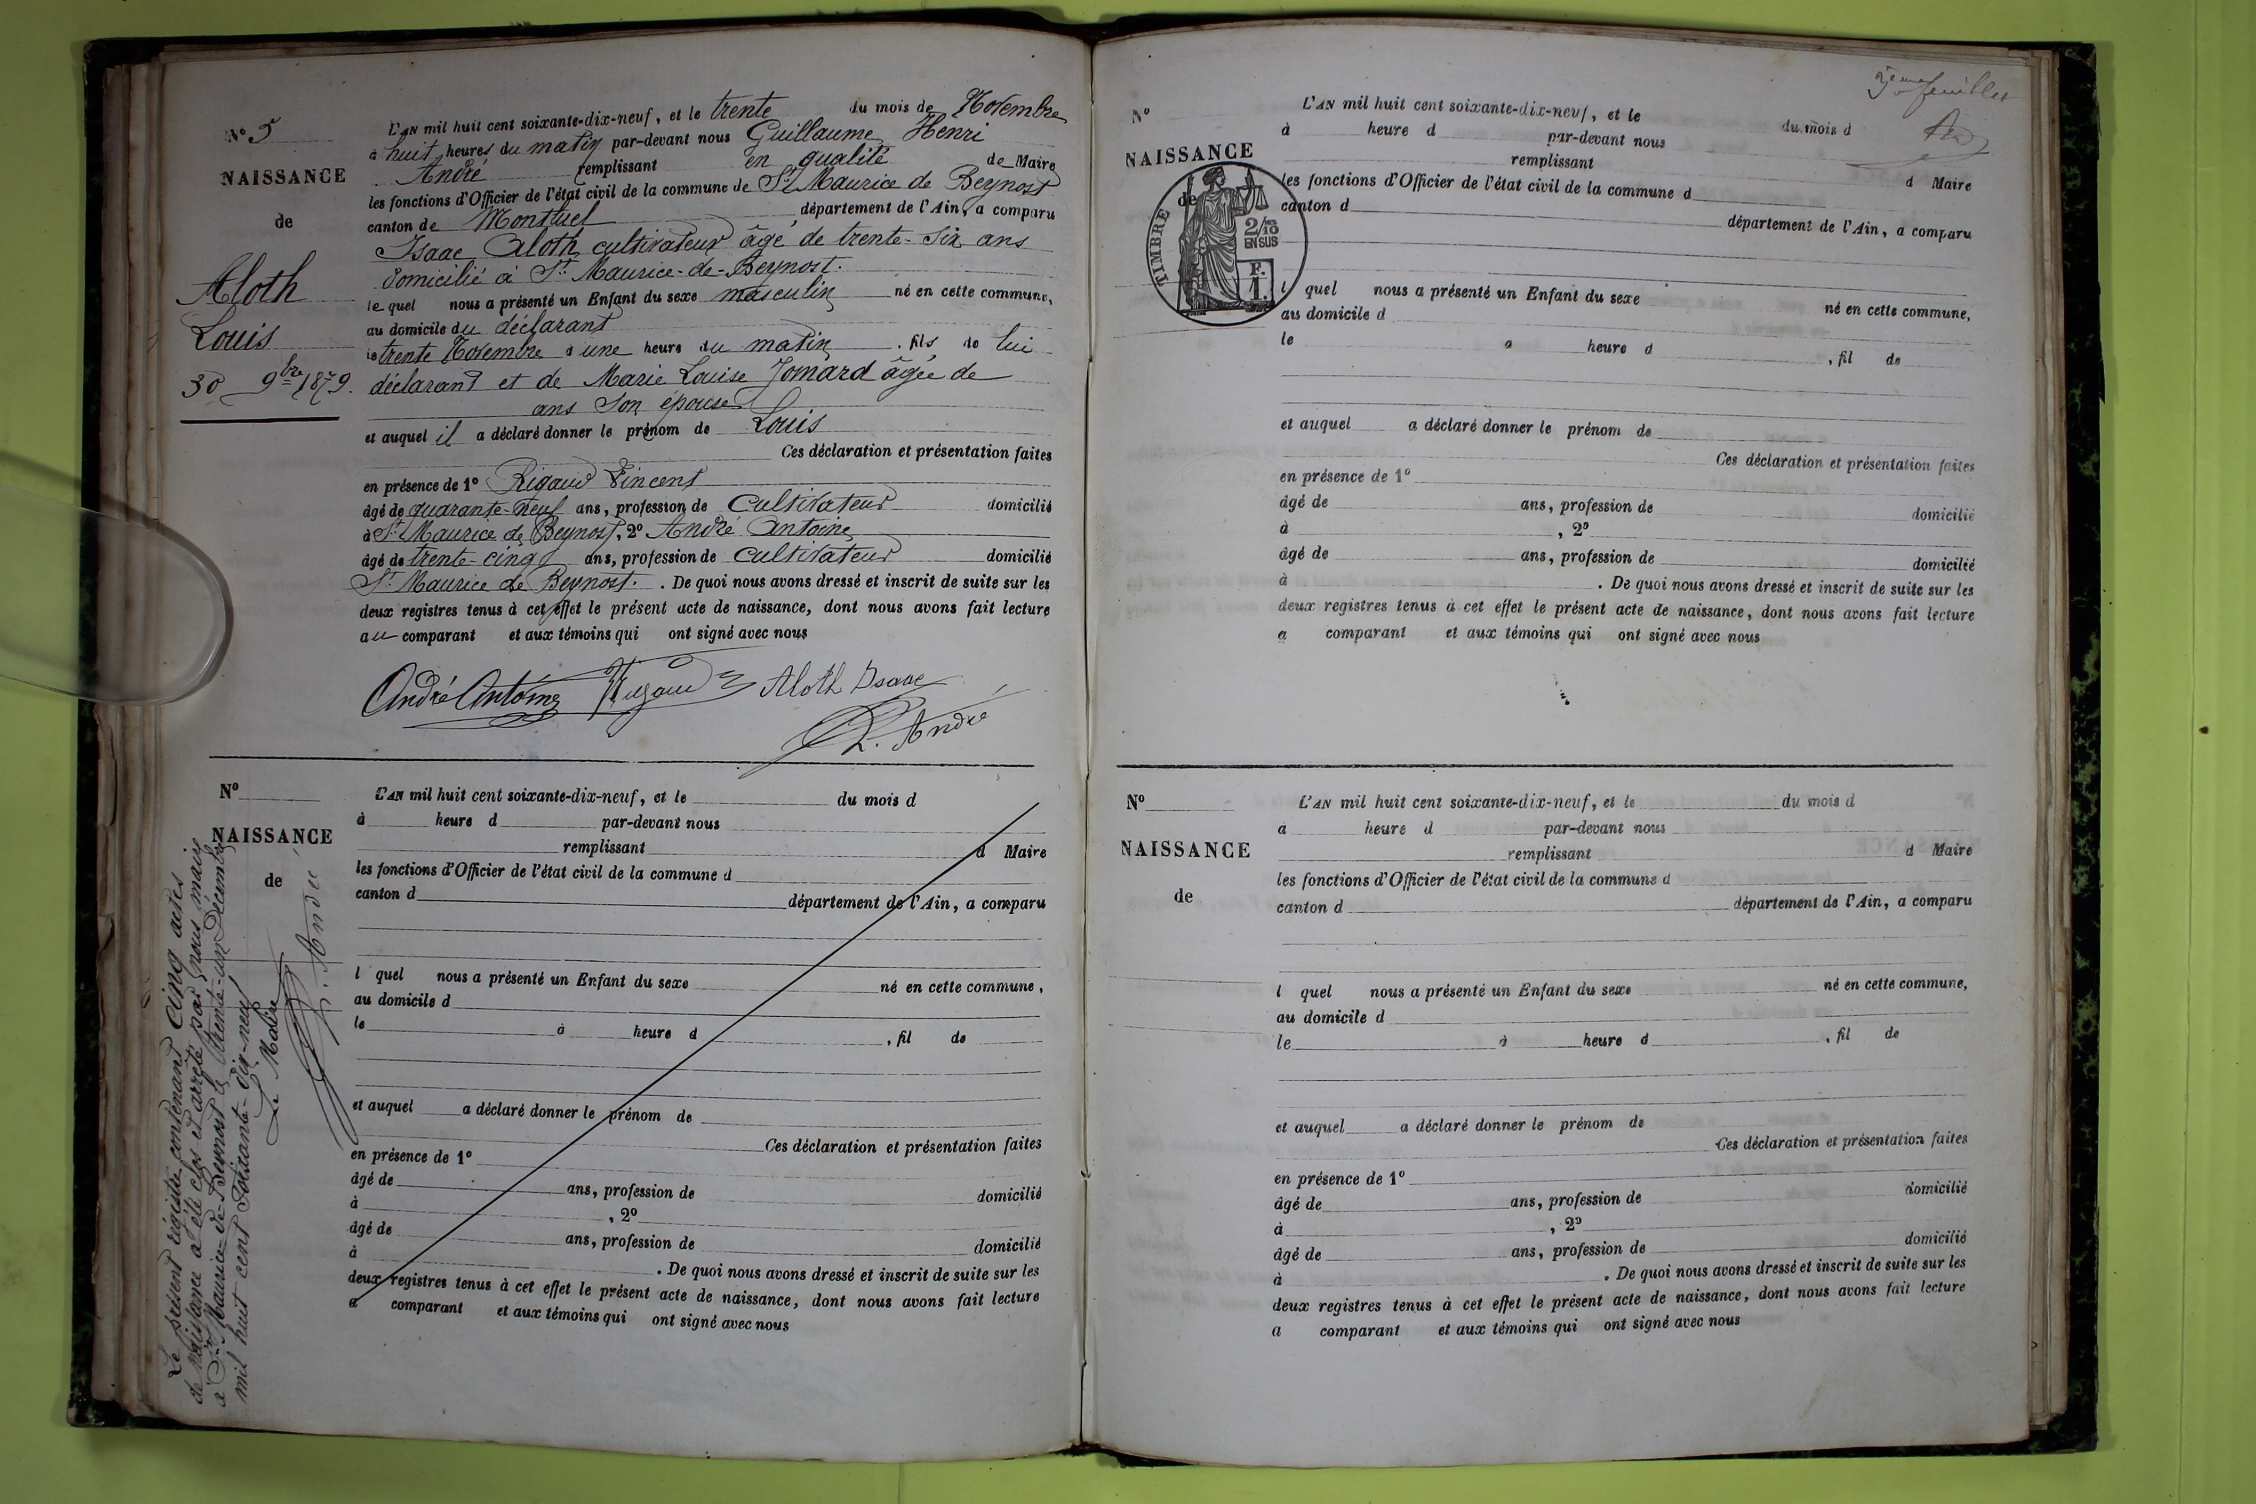 N° 5
NAISSANCE
de
Aloth
Louis
30 9bre 1879.
L'AN mil huit cent soixante-dix-neuf, et le trente du mois de Novembre
à huit heures du matin par-devant nous Guillaume Henri
André remplissant en qualité de Maire
les fonctions d'Officier de l'état civil de la commune de St Maurice de Beynost
canton de Montluel département de l'Ain, a comparu
Isaac Aloth cultivateur âgé de trente-six ans
domicilié à St Maurice-de-Beynost.
lequel nous a présenté un Enfant du sexe masculin né en cette commune,
au domicile du déclarant
le trente Novembre à une heure du matin, fils de lui
déclarant et de Marie Louise Jomard âgée de
ans son épouse
et auquel il a déclaré donner le prénom de Louis
Ces déclaration et présentation faites
en présence de 1° Rigaud Vincent
âgé de quarante-neuf ans, profession de Cultivateur domicilié
à St Maurice de Beynost, 2° André Antoine
âgé de trente-cinq ans, profession de Cultivateur domicilié
St Maurice de Beynost. . De quoi nous avons dressé et inscrit de suite sur les
deux registres tenus à cet effet le présent acte de naissance, dont nous avons fait lecture
au comparant et aux témoins qui ont signé avec nous
André Antoine Rigaud Aloth Isaac
André
N°
NAISSANCE
de
L'AN mil huit cent soixante-dix-neuf, et le du mois d
à heure d par-devant nous
remplissant d Maire
les fonctions d'Officier de l'état civil de la commune d
canton d département de l'Ain, a comparu
l quel nous a présenté un Enfant du sexe né en cette commune,
au domicile d
le à heure d , fil de
et auquel a déclaré donner le prénom de
Ces déclaration et présentation faites
en présence de 1°
âgé de ans, profession de domicilié
à , 2°
âgé de ans, profession de domicilié
à . De quoi nous avons dressé et inscrit de suite sur les
deux registres tenus à cet effet le présent acte de naissance, dont nous avons fait lecture
a comparant et aux témoins qui ont signé avec nous
Le présent registre contenant cinq actes
de naissance a été clos et arrêté par nous maire
à St Maurice-de-Beynost le trente-un Décembre
mil huit cent soixante-dix-neuf
Le Maire
André
5eme feuillet
N°
NAISSANCE
de
TIMBRE
2/10
EN SUS
F.
1.
L'AN mil huit cent soixante-dix-neuf, et le du mois d
à heure d par-devant nous
remplissant d Maire
les fonctions d'Officier de l'état civil de la commune d
canton d département de l'Ain, a comparu
l quel nous a présenté un Enfant du sexe né en cette commune,
au domicile d
le à heure d , fil de
et auquel a déclaré donner le prénom de
Ces déclaration et présentation faites
en présence de 1°
âgé de ans, profession de domicilié
à , 2°
âgé de ans, profession de domicilié
à . De quoi nous avons dressé et inscrit de suite sur les
deux registres tenus à cet effet le présent acte de naissance, dont nous avons fait lecture
a comparant et aux témoins qui ont signé avec nous
N°
NAISSANCE
de
L'AN mil huit cent soixante-dix-neuf, et le du mois d
à heure d par-devant nous
remplissant d Maire
les fonctions d'Officier de l'état civil de la commune d
canton d département de l'Ain, a comparu
l quel nous a présenté un Enfant du sexe né en cette commune,
au domicile d
le à heure d , fil de
et auquel a déclaré donner le prénom de
Ces déclaration et présentation faites
en présence de 1°
âgé de ans, profession de domicilié
à , 2°
âgé de ans, profession de domicilié
à . De quoi nous avons dressé et inscrit de suite sur les
deux registres tenus à cet effet le présent acte de naissance, dont nous avons fait lecture
a comparant et aux témoins qui ont signé avec nous